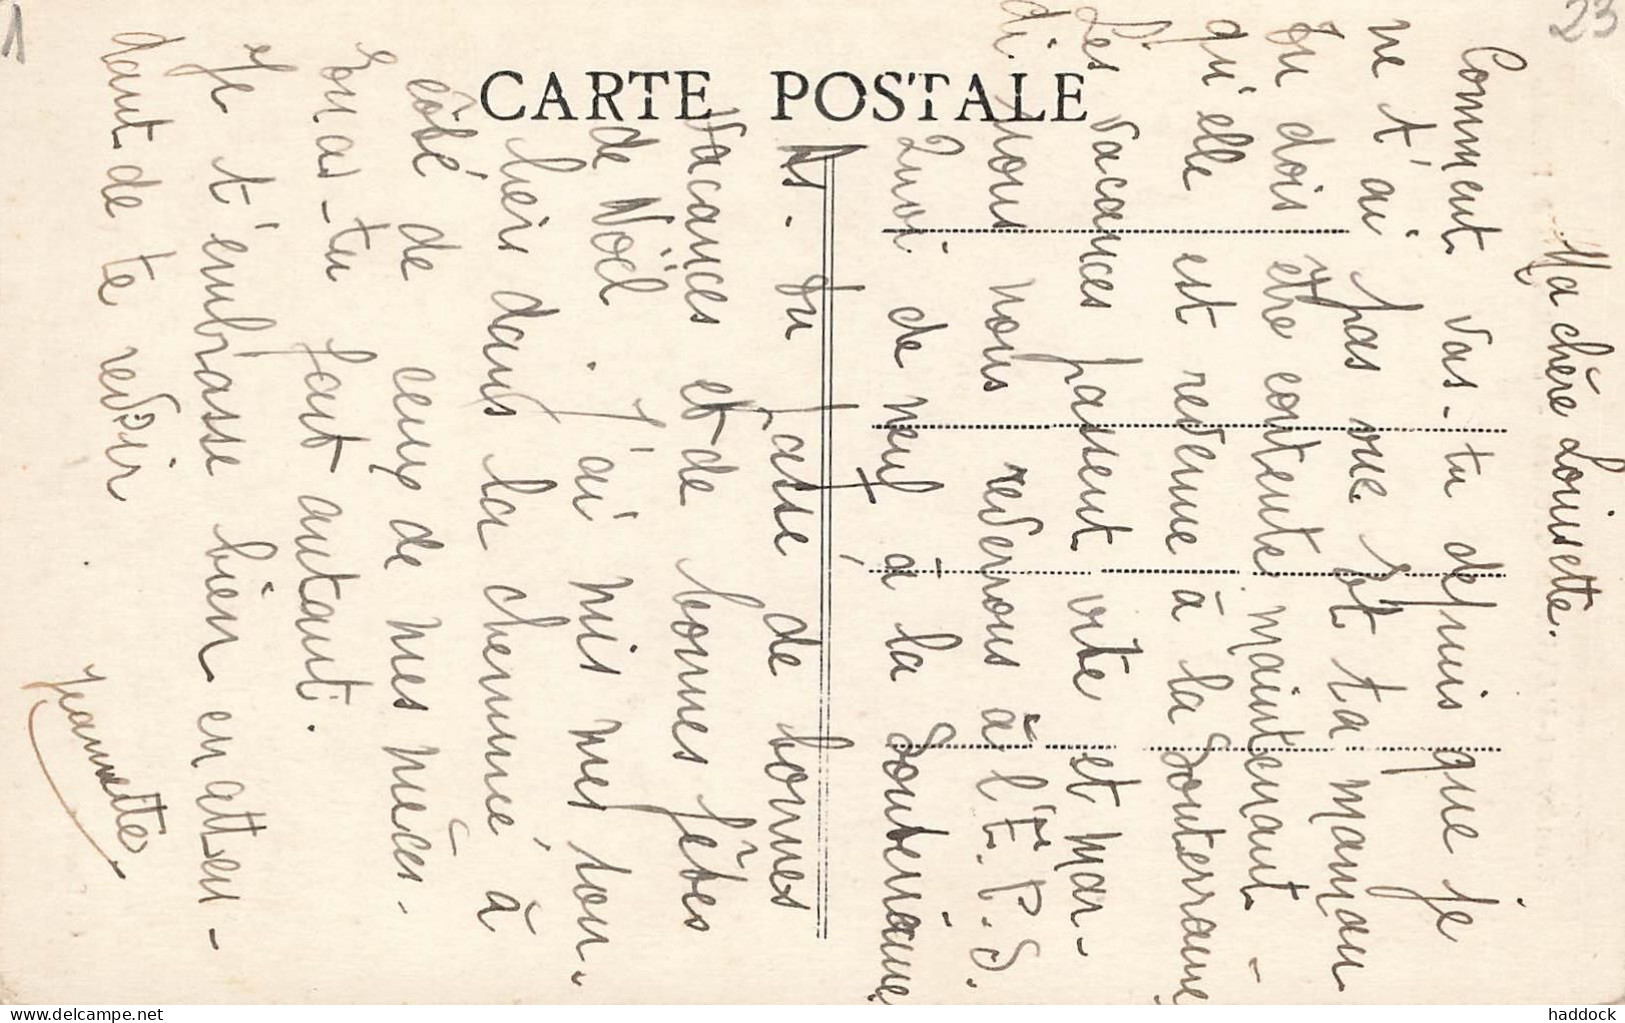 1
23
CARTE POSTALE
Ma chère Louisette.
Comment vas-tu depuis que je
ne t'ai pas vue Et ta maman
Tu dois être contente maintenant
qu'elle est revenue à la Souterraine
Les vacances passent vite et mar-
di nous nous reverrons à l'E.P.S.
Quoi de neuf à la Souterraine
As-tu passé de bonnes
vacances et de bonnes fêtes
de Noël. J'ai mis mes sou-
liers dans la cheminée à
côté de ceux de mes nièces.
En as-tu fait autant.
Je t'embrasse bien en atten-
dant de te revoir
Jeannette
www.delcampe.net
haddock